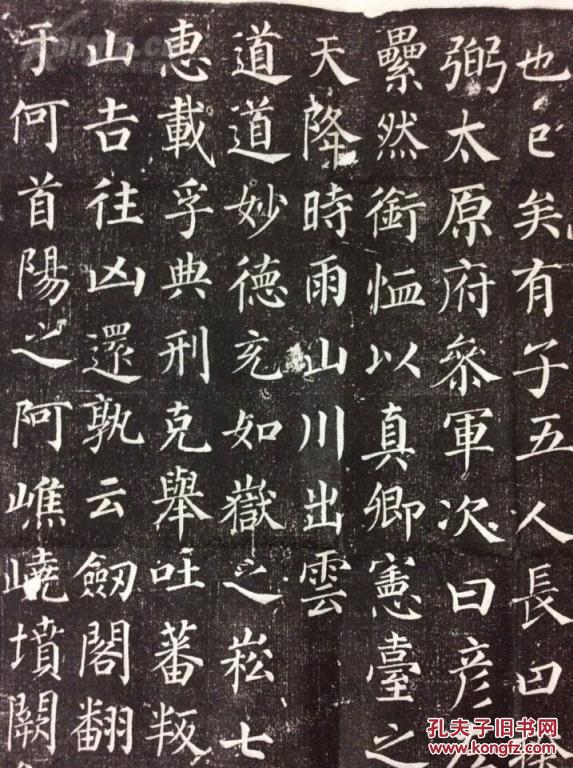 也已矣有子五人長曰
弼太原府叅軍次曰彦
纍然銜恤以真卿憲臺之
天降時雨山川出雲
道道妙德充如嶽之崧七
惠載孚典刑克舉吐蕃叛
山吉往凶還孰云劒閣翻
于何首陽之阿嶕嶢墳闕
孔夫子旧书网
www.kongfz.com